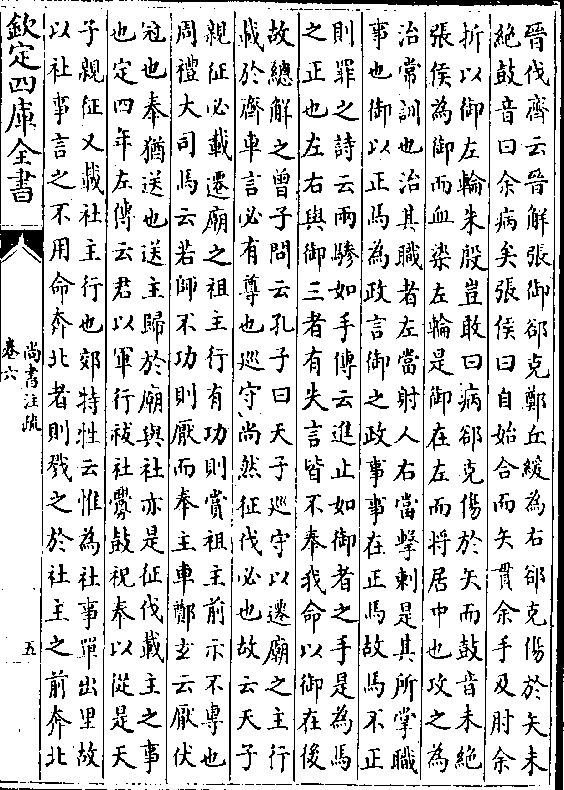 晉伐齊云晉解張御郤克鄭丘緩為右郤克傷於矢未
絶鼓音曰余病矣張侯曰自始合而矢貫余手及肘余
折以御左輪朱殷豈敢曰病郤克傷於矢而鼓音未絶
張侯為御而血染左輪是御在左而將居中也攻之為
治常訓也治其職者左當射人右當擊刺是其所掌職
事也御以正馬為政言御之政事事在正馬故馬不正
則罪之詩云兩驂如手傳云進止如御者之手是為馬
之正也左右與御三者有失言皆不奉我命以御在後
故總解之曾子問云孔子曰天子巡守以遷廟之主行
載於齊車言必有尊也巡守尚然征伐必也故云天子
親征必載遷廟之祖主行有功則賞祖主前示不專也
周禮大司馬云若師不功則厭而奉主車鄭玄云厭伏
冠也奉猶送也送主歸於廟與社亦是征伐載主之事
也定四年左傳云君以軍行祓社釁鼓祝奉以從是天
子親征又載社主行也郊特牲云惟為社事單出里故
以社事言之不用命奔北者則戮之於社主之前奔北
欽定四庫全書
尚書注疏
卷六
五